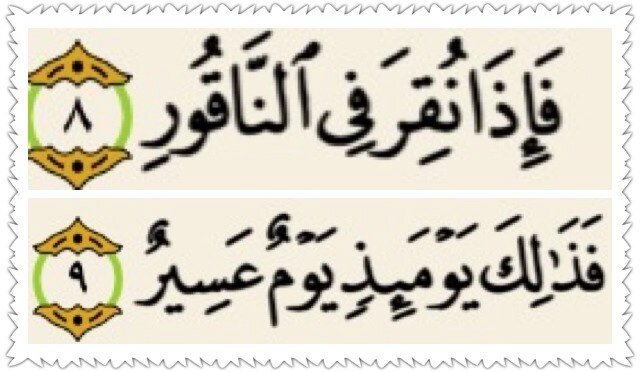 فَإِذَا نُقِرَ فِى ٱلنَّاقُورِ ٨
فَذَٰلِكَ يَوْمَئِذٍ يَوْمٌ عَسِيرٌ ٩